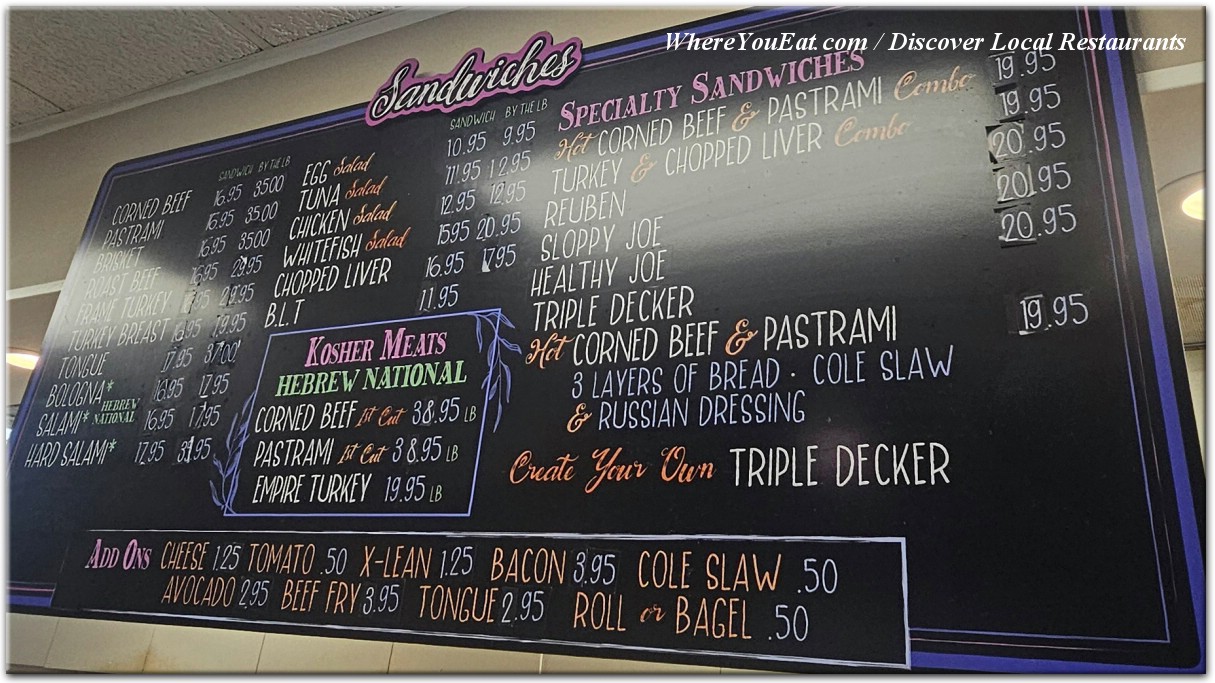 WhereYouEat.com / Discover Local Restaurants
Sandwiches
SANDWICH BY THE LB
CORNED BEEF 16.95 35.00
PASTRAMI 16.95 35.00
BRISKET 16.95 35.00
ROAST BEEF 16.95 29.95
FRAME TURKEY 29.95
TURKEY BREAST 16.95 19.95
TONGUE 17.95 37.00
BOLOGNA* 16.95 17.95
HEBREW NATIONAL
SALAMI* 16.95 17.95
HARD SALAMI* 17.95 95
SANDWICH BY THE LB
EGG Salad 10.95 9.95
TUNA Salad 11.95 12.95
CHICKEN Salad 12.95 12.95
WHITEFISH Salad 15.95 20.95
CHOPPED LIVER 16.95 17.95
B.L.T 11.95
KOSHER MEATS
HEBREW NATIONAL
CORNED BEEF 1st Cut 38.95 LB
PASTRAMI 1st Cut 38.95 LB
EMPIRE TURKEY 19.95 LB
SPECIALTY SANDWICHES
Hot CORNED BEEF & PASTRAMI Combo 19.95
TURKEY & CHOPPED LIVER Combo 19.95
REUBEN 20.95
SLOPPY JOE 20.95
HEALTHY JOE 20.95
TRIPLE DECKER
Hot CORNED BEEF & PASTRAMI 19.95
3 LAYERS OF BREAD · COLE SLAW
& RUSSIAN DRESSING
Create Your Own TRIPLE DECKER
ADD ONS CHEESE 1.25 TOMATO .50 X-LEAN 1.25 BACON 3.95 COLE SLAW .50
AVOCADO 2.95 BEEF FRY 3.95 TONGUE 2.95 ROLL or BAGEL .50